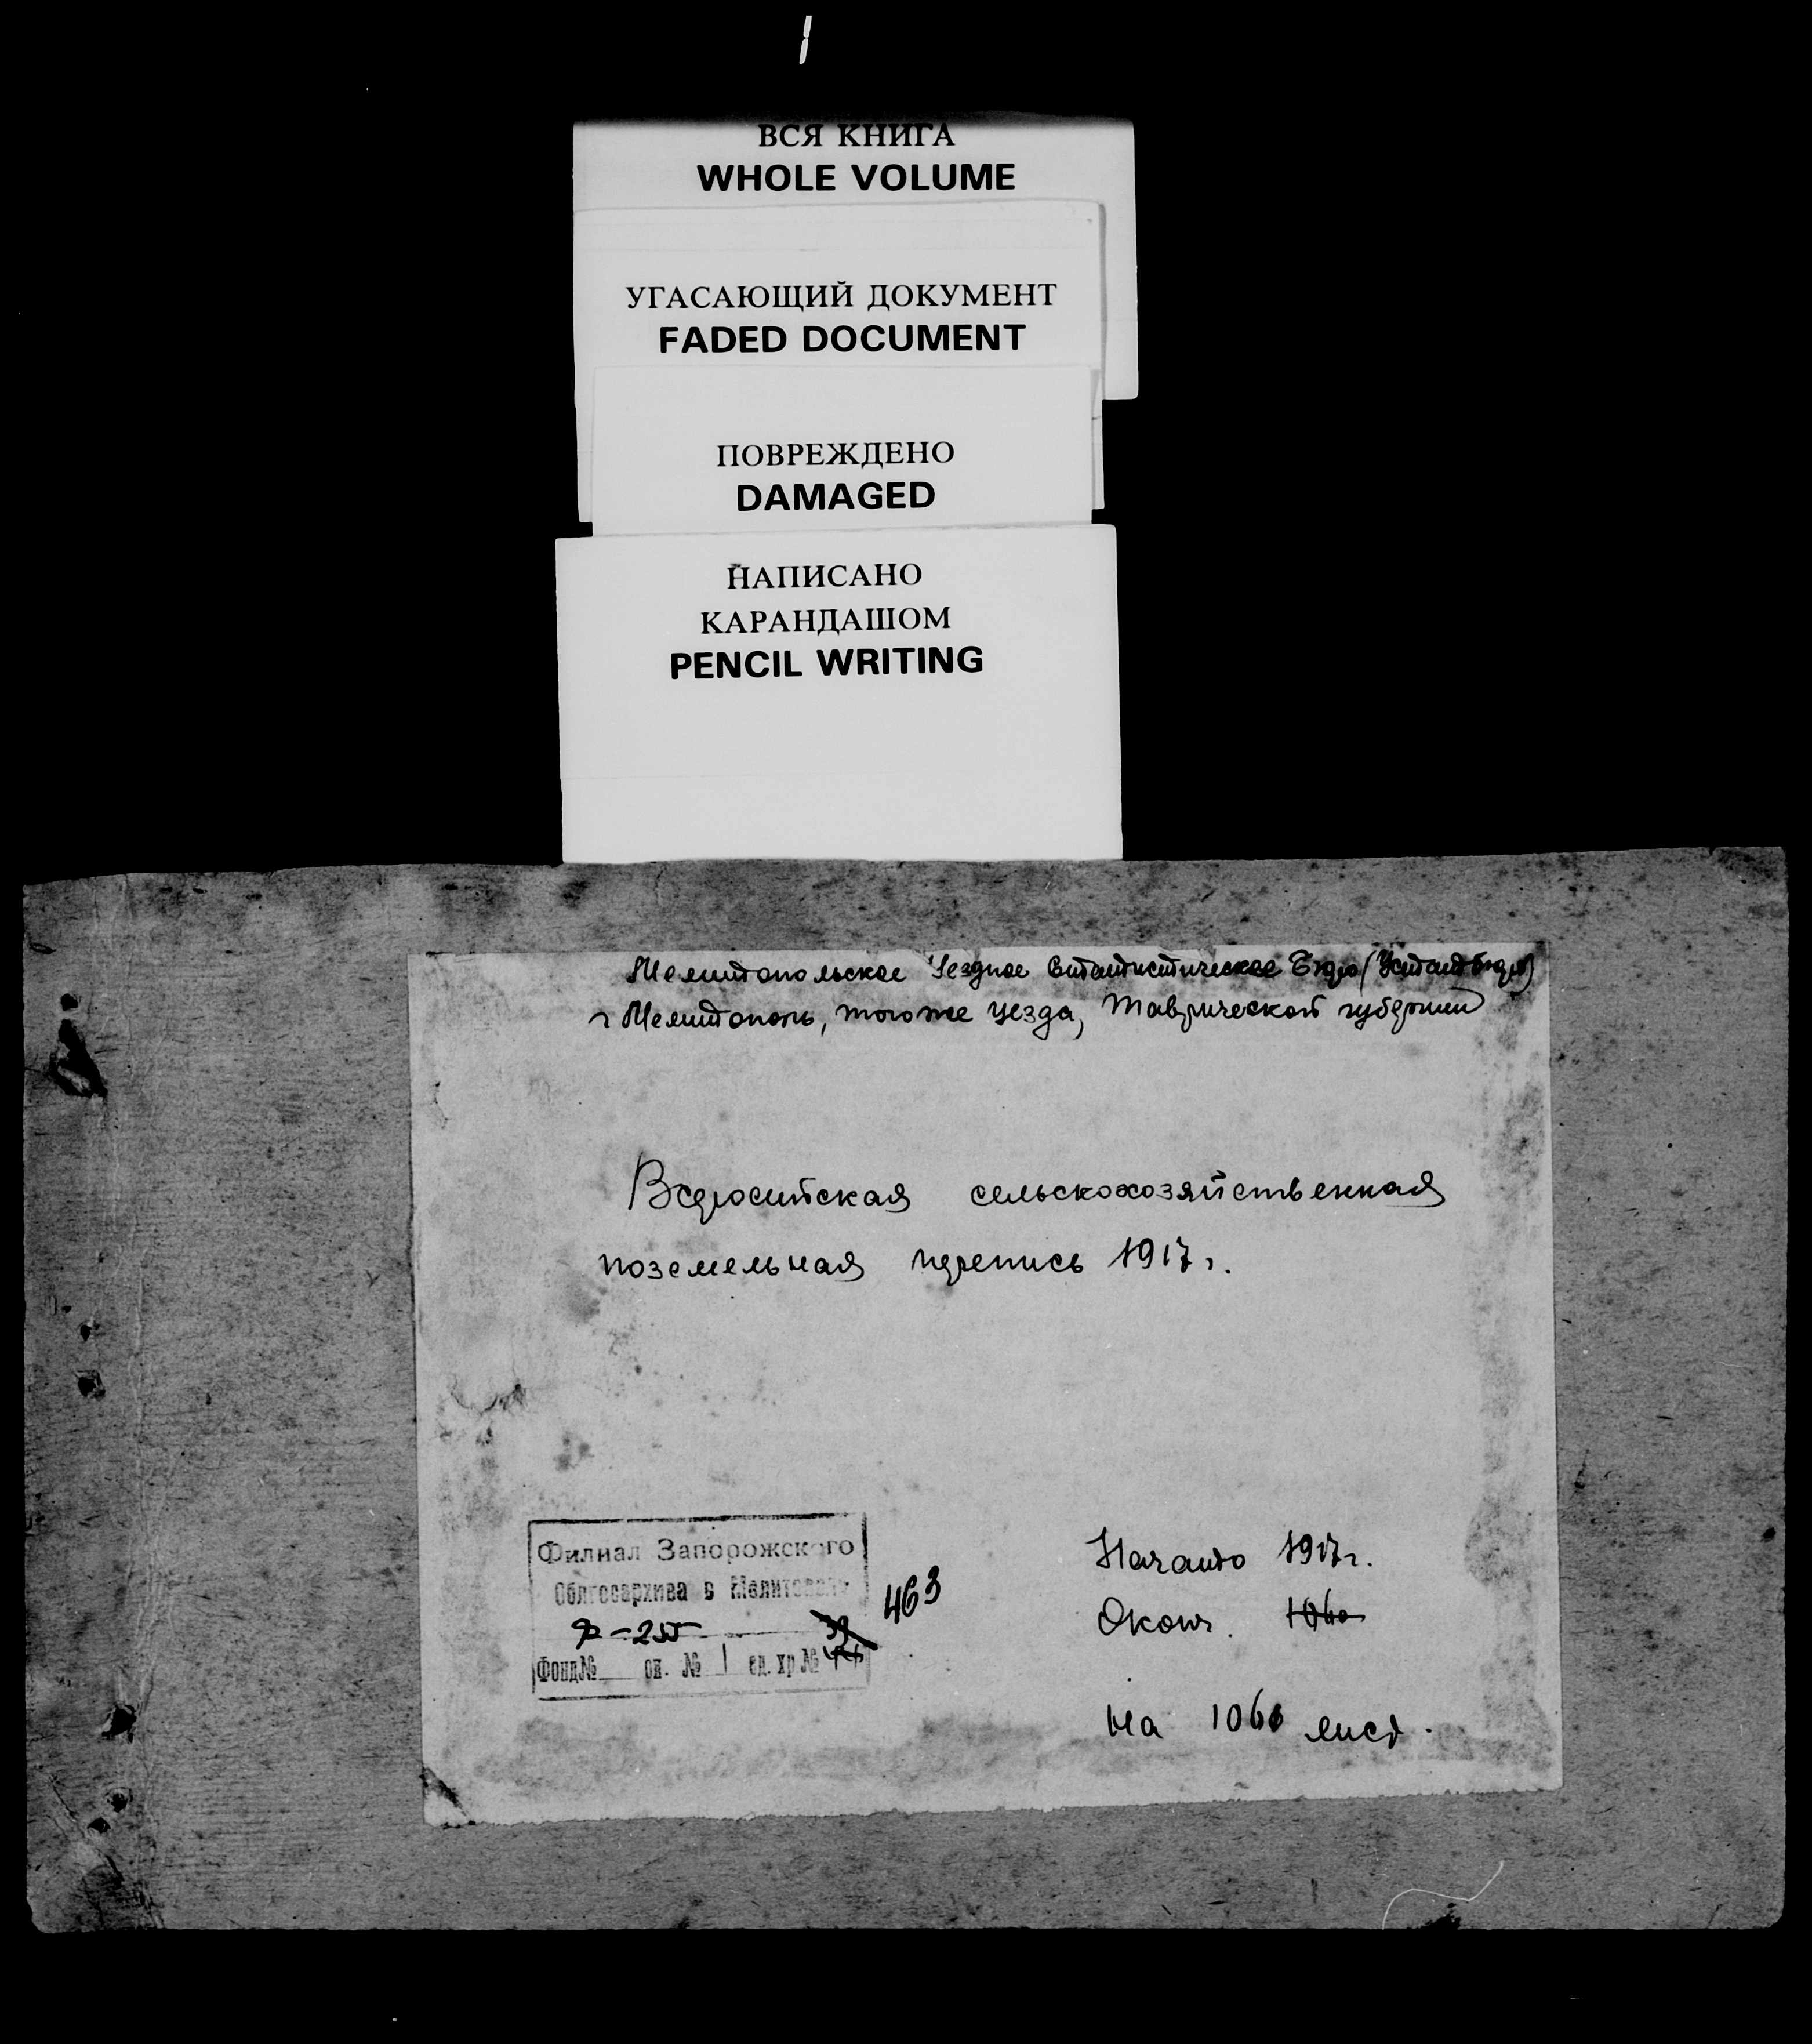 ВСЯ КНИГА
WHOLE VOLUME
УГАСАЮЩИЙ ДОКУМЕНТ
FADED DOCUMENT
ПОВРЕЖДЕНО
DAMAGED
НАПИСАНО
КАРАНДАШОМ
PENCIL WRITING
Мелитопольское Уездное Статистическое Бюро (Устатбюро)
г Мелитополь, того же уезда, Таврической губернии
Всеросийская сельскохозяйственная
поземельная перепись 1917 г.
Филиал Запорожского
Облгосархива в Мелитополе
463
Фонд № оп. № 1 ед. хр №
Начато 1917 г.
Оконч.
На лист.